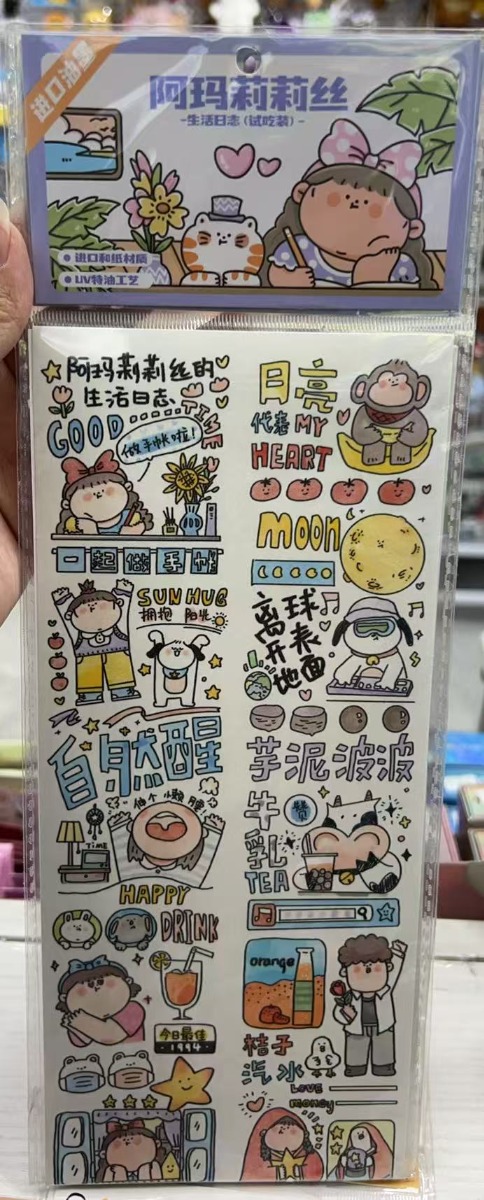 进口油墨
阿玛莉莉丝
-生活日志(试吃装)-
进口和纸材质
UV特油工艺
阿玛莉莉丝的
生活日志、
GOOD
TIME
做手帐啦!
一起做手帐
SUN HUG
拥抱 阳光
自然醒
伸个懒腰!
TIME
HAPPY
DRINK
今日最佳
1994
月亮
代表 MY
HEART
moon
离开地球表面
芋泥波波
牛乳
赞
TEA
orange
桔子
汽水
Love
money